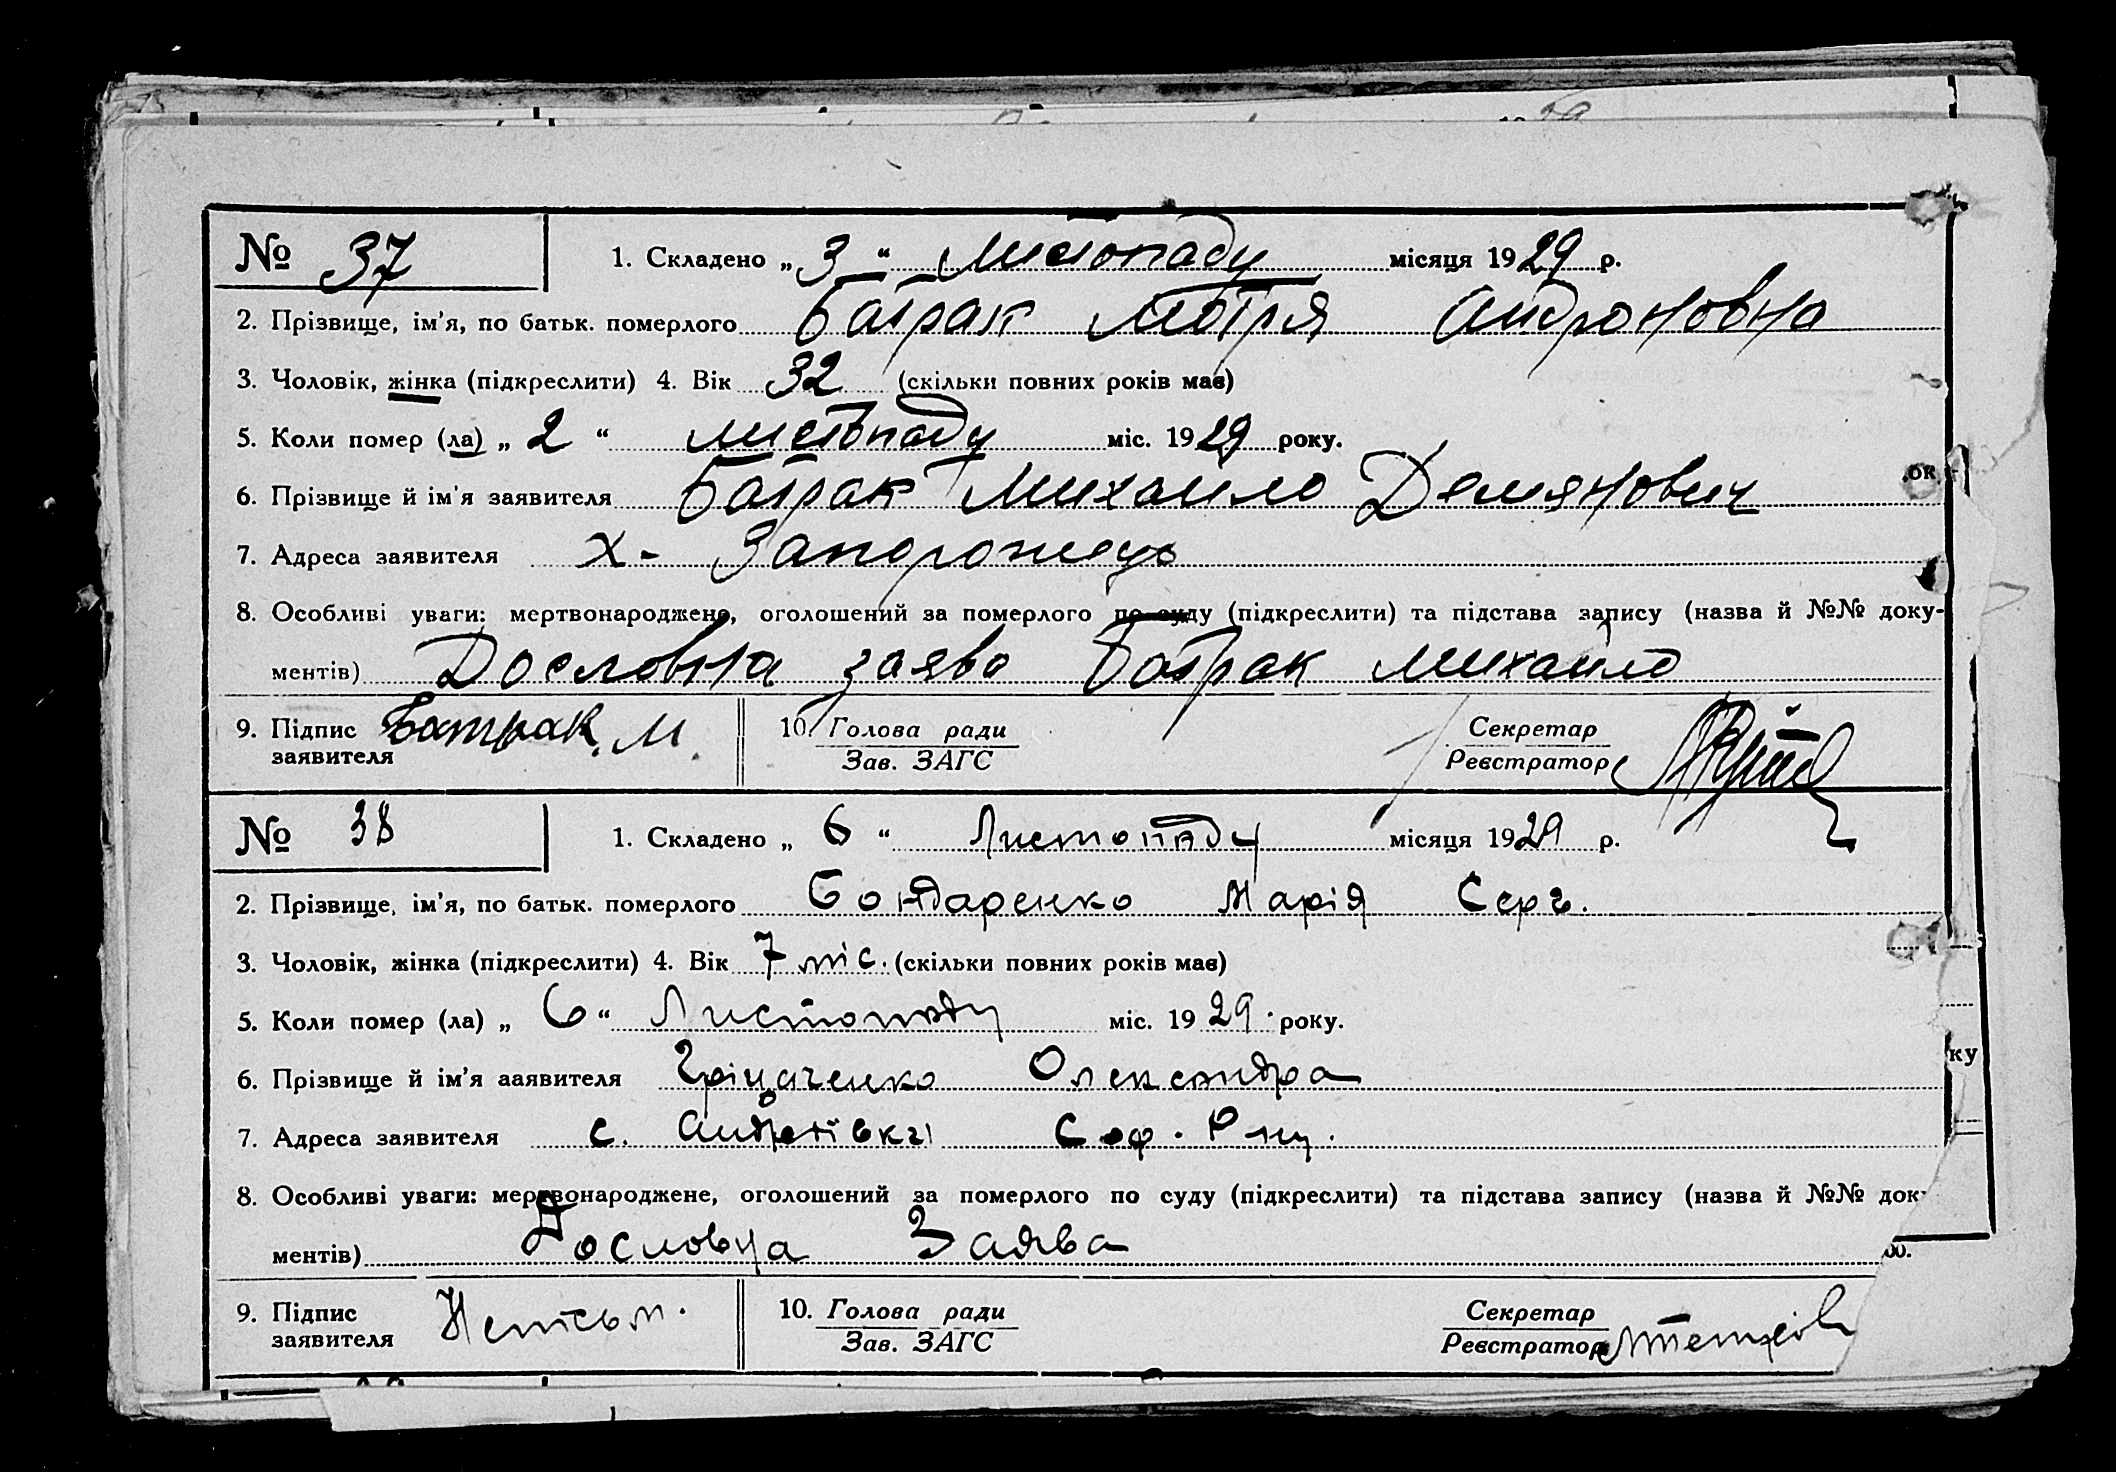 № 37 1. Складено „3“ Листопаду місяця 1929 р.
2. Прізвище, ім'я, по батьк. померлого Батрак Мотря Андроновна
3. Чоловік, жінка (підкреслити) 4. Вік 32 (скільки повних років має)
5. Коли помер (ла) „2“ листопаду міс. 1929 року.
6. Прізвище й ім'я заявителя Батрак Михайло Демянович
7. Адреса заявителя х. Запорожець
8. Особливі уваги: мертвонароджене, оголошений за померлого по суду (підкреслити) та підстава запису (назва й №№ доку-
ментів) Дословна заява Батрак Михайло
9. Підпис заявителя Батрак. М. 10. Голова ради Секретар
Зав. ЗАГС Реєстратор
№ 38 1. Складено „6“ Листопаду місяця 1929 р.
2. Прізвище, ім'я, по батьк. померлого Бондаренко Марія Серг.
3. Чоловік, жінка (підкреслити) 4. Вік 7 міс. (скільки повних років має)
5. Коли помер (ла) „6“ Листопаду міс. 1929. року.
6. Прізвище й ім'я заявителя Гріцаченко Олександра
7. Адреса заявителя с. Соф.
8. Особливі уваги: мертвонароджене, оголошений за померлого по суду (підкреслити) та підстава запису (назва й №№ док
ментів) Дословна Заява
9. Підпис заявителя Неписьм. 10. Голова ради Секретар
Зав. ЗАГС Реєстратор